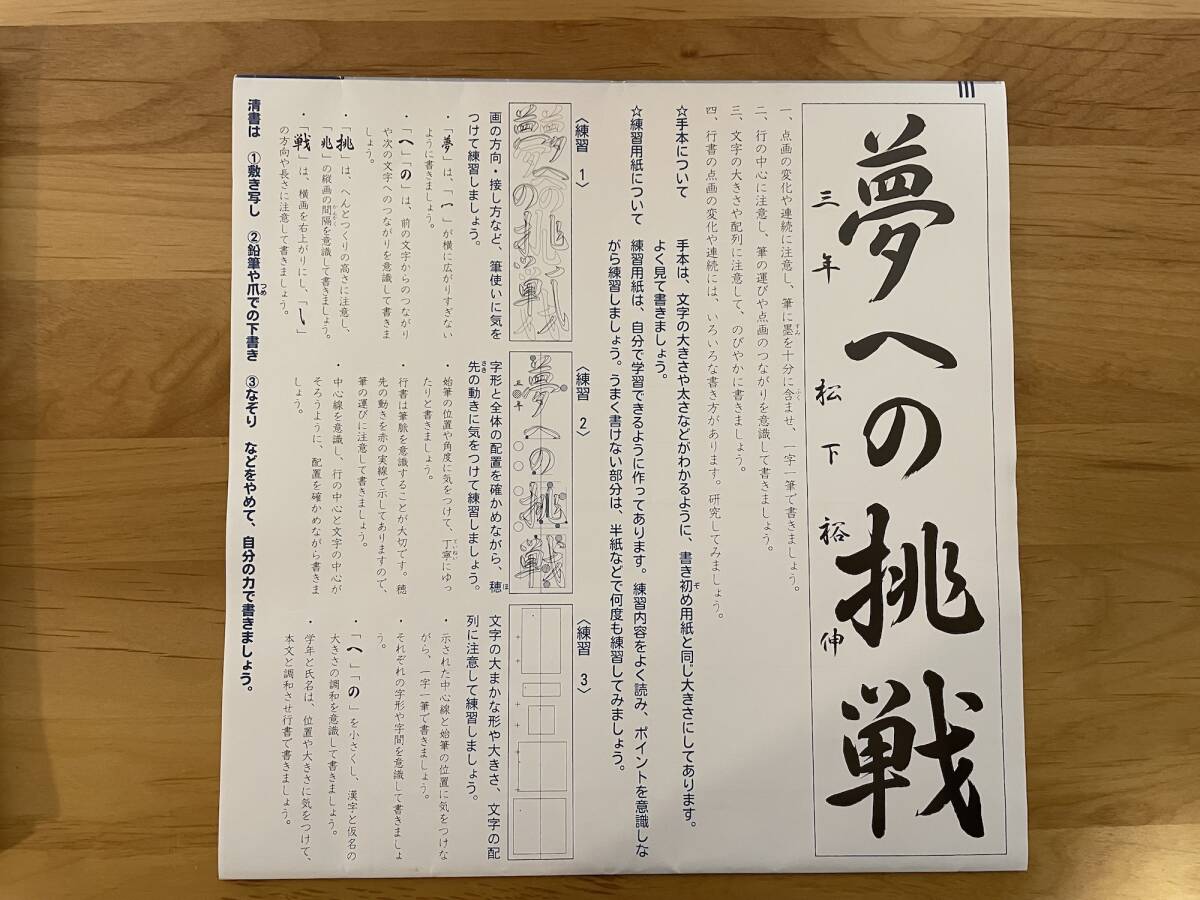 夢への挑戦
三年 松下裕伸
一、点画の変化や連続に注意し、筆に墨を十分に含ませ、一字一筆で書きましょう。
二、行の中心に注意し、筆の運びや点画のつながりを意識して書きましょう。
三、文字の大きさや配列に注意して、のびやかに書きましょう。
四、行書の点画の変化や連続には、いろいろな書き方があります。研究してみましょう。
☆手本について
手本は、文字の大きさや太さなどがわかるように、書き初め用紙と同じ大きさにしてあります。
よく見て書きましょう。
☆練習用紙について
練習用紙は、自分で学習できるように作ってあります。練習内容をよく読み、ポイントを意識しな
がら練習しましょう。うまく書けない部分は、半紙などで何度も練習してみましょう。
〈練習 1〉
夢への挑戦
画の方向・接し方など、筆使いに気を
つけて練習しましょう。
・「夢」は、「冖」が横に広がりすぎない
ように書きましょう。
・「へ」「の」は、前の文字からのつながり
や次の文字へのつながりを意識して書きま
しょう。
・「挑」は、へんとつくりの高さに注意し、
「兆」の縦画の間隔を意識して書きましょう。
・「戦」は、横画を右上がりにし、「㇂」
の方向や長さに注意して書きましょう。
〈練習 2〉
夢への挑戦
三〇年
字形と全体の配置を確かめながら、穂
先の動きに気をつけて練習しましょう。
・始筆の位置や角度に気をつけて、丁寧にゆっ
たりと書きましょう。
・行書は筆脈を意識することが大切です。穂
先の動きを赤の実線で示してありますので、
筆の運びに注意して書きましょう。
・中心線を意識し、行の中心と文字の中心が
そろうように、配置を確かめながら書きま
しょう。
〈練習 3〉
文字の大まかな形や大きさ、文字の配
列に注意して練習しましょう。
・示された中心線と始筆の位置に気をつけな
がら、一字一筆で書きましょう。
・それぞれの字形や字間を意識して書きましょ
う。
・「へ」「の」を小さくし、漢字と仮名の
大きさの調和を意識して書きましょう。
・学年と氏名は、位置や大きさに気をつけて、
本文と調和させ行書で書きましょう。
清書は ①敷き写し ②鉛筆や爪での下書き ③なぞり などをやめて、自分の力で書きましょう。